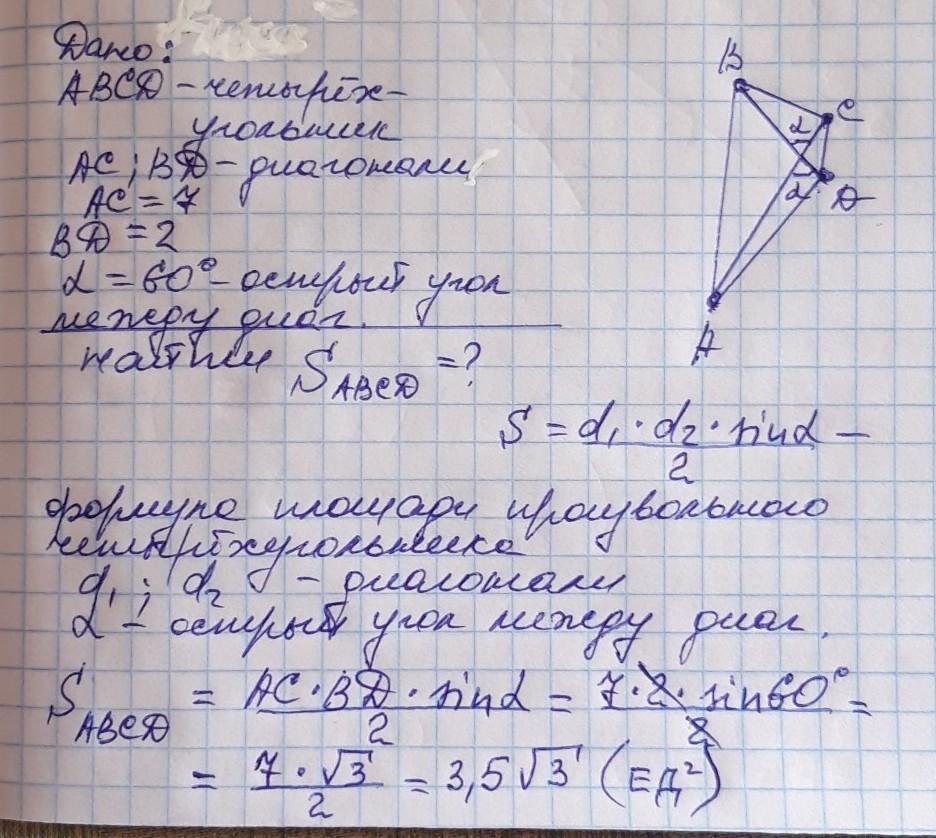 Дано:
ABCD - четырёх-
угольник
AC; BD - диагонали
AC = 7
BD = 2
α = 60° - острый угол
между диаг.
Найти S_ABCD = ?
B
C
α
α
D
A
S = d₁ · d₂ · sinα / 2 -
формула площади произвольного
четырёхугольника
d₁; d₂ - диагонали
α - острый угол между диаг.
S_ABCD = AC · BD · sinα / 2 = 7 · 2 · sin60° / 2 =
= 7 · √3 / 2 = 3,5 √3 (ЕД²)